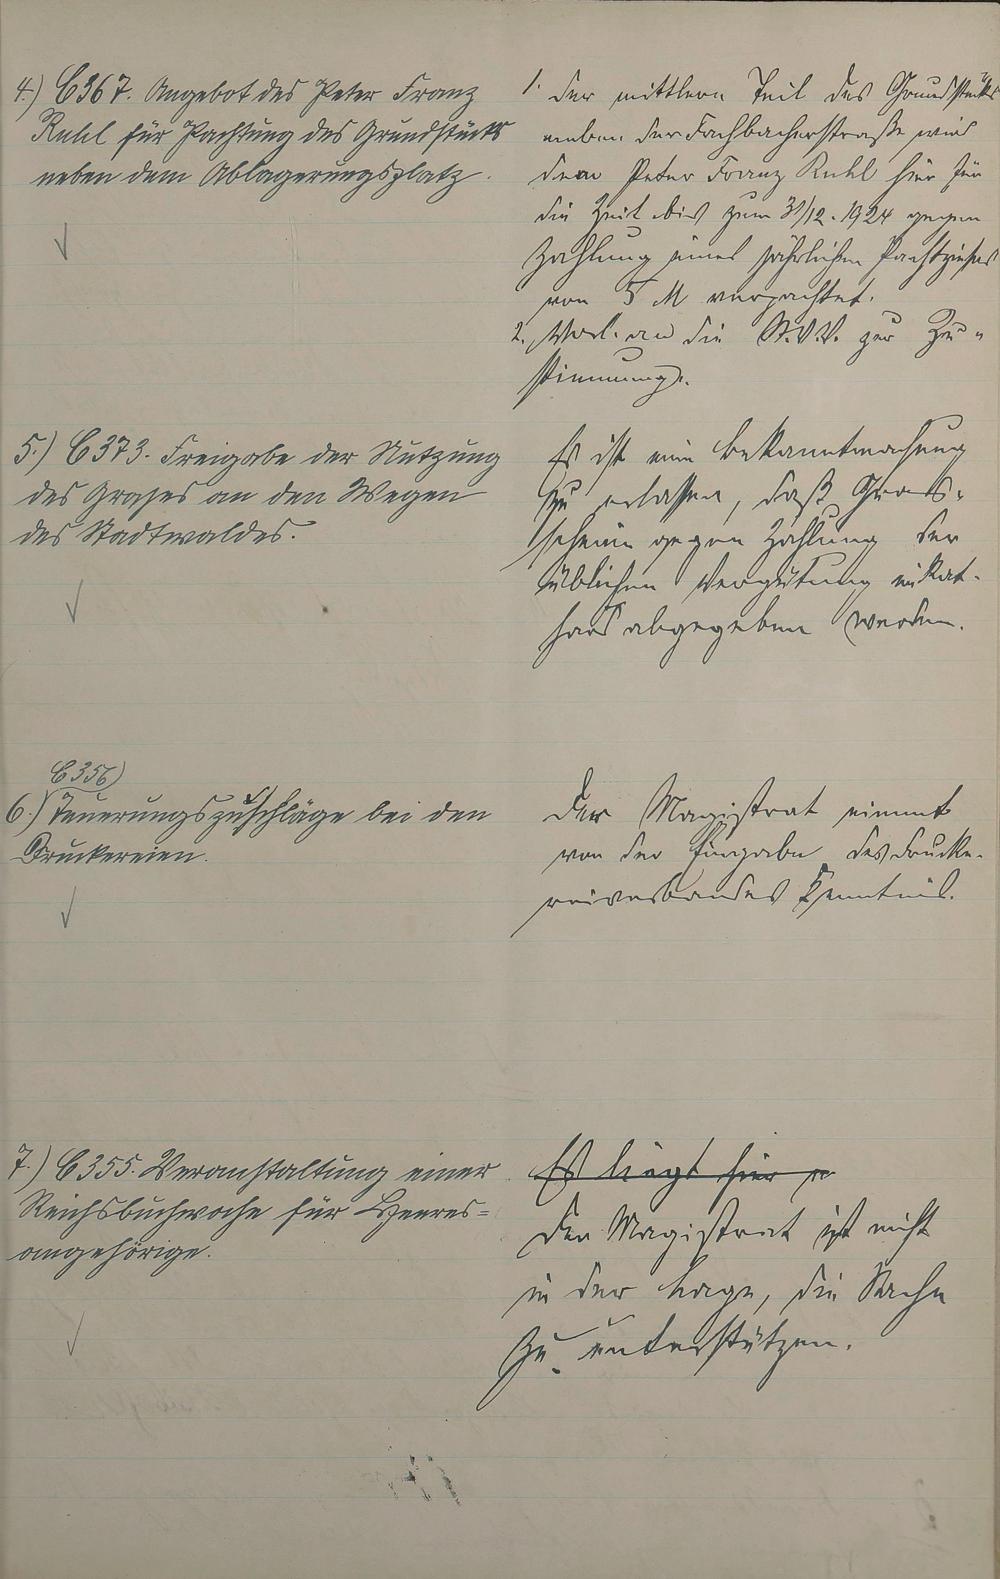 4.) C 367. Angebot des Peter Franz
Ruhl für Pachtung des Grundstücks
neben dem Ablagerungsplatz.
1. Der mittlere Teil des Grundstücks
neben der Fachbacherstraße wird
dem Peter Franz Ruhl hier für
die Zeit bis zum 31/12. 1924 gegen
Zahlung eines jährlichen Pachtzinses
von 5 M verpachtet.
2. Vorl. an die St.V.V. zur Zu-
stimmung.
5.) C 373. Freigabe der Nutzung
des Grases an den Wegen
des Stadtwaldes.
Es ist eine Bekanntmachung
zu erlassen, daß Gras-
scheine gegen Zahlung der
üblichen Vergütung im Rat-
haus abgegeben werden.
C 356)
6.) Teuerungszuschläge bei den
Druckereien.
Der Magistrat nimmt
von der Eingabe des Drucke-
reiverbandes Kenntnis.
7.) C 355. Veranstaltung einer
Reichsbuchwoche für Heeres=
angehörige.
Es liegt hier
Der Magistrat ist nicht
in der Lage, die Sache
zu unterstützen.